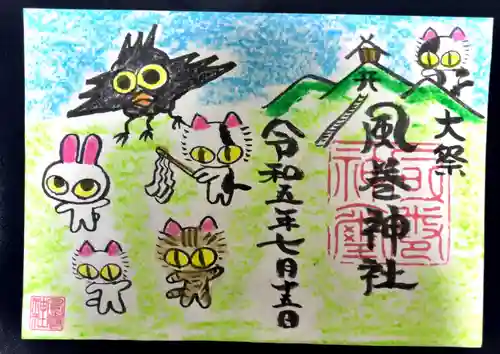 大祭
風巻神社
令和五年七月十五日